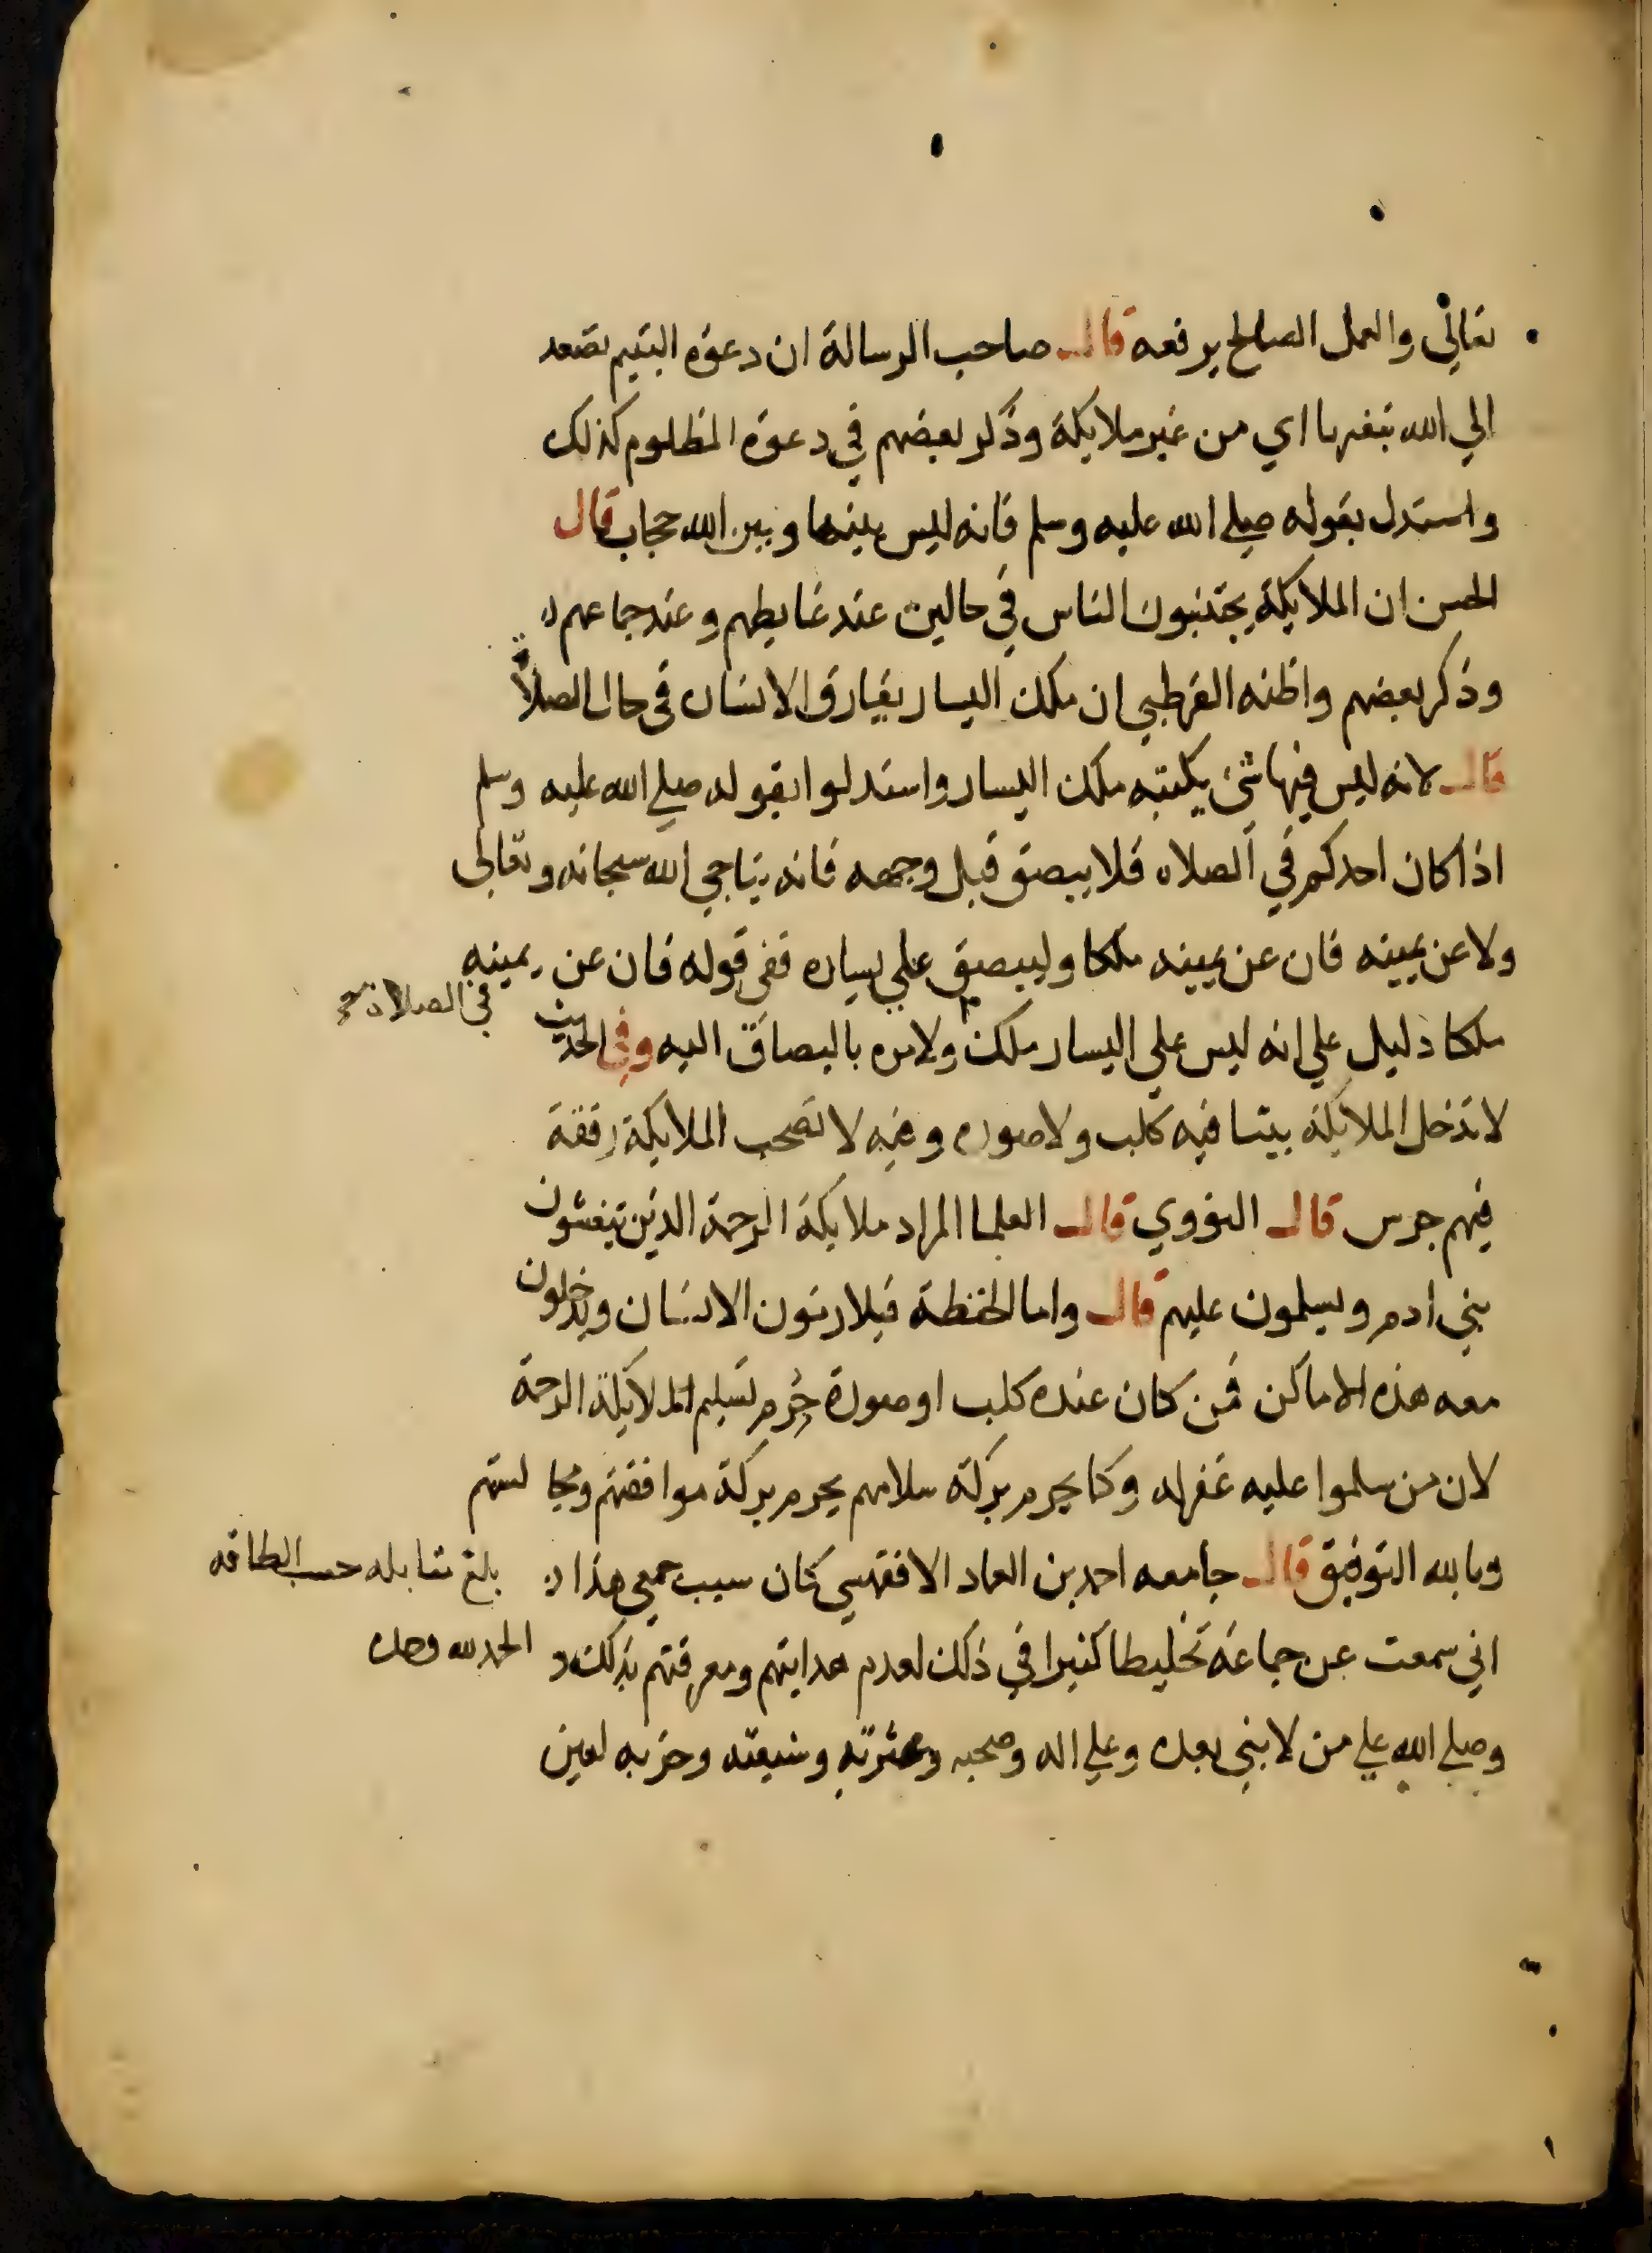 تعالي والعمل الصالح يرفعه قال صاحب الرسالة ان دعوة اليتيم تصعد
الي الله بنفسها اي من غير ملايكة وذكر بعضهم في دعوة المظلوم كذلك
واستدل بقوله صلي الله عليه وسلم فانه ليس بينها وبين الله حجاب قال
الحسن ان الملايكة يجتنبون الناس في حالين عند غايطهم وعند جماعهم
وذكر بعضهم واظنه القرطبي ان ملك اليسار يفارق الانسان في حال الصلاة
قال لانه ليس فيها شئ يكتبه ملك اليسار واستدلوا بقوله صلي الله عليه وسلم
اذا كان احدكم في الصلاه فلا يبصق قبل وجهه فانه يناجي الله سبحانه وتعالي
ولا عن يمينه فان عن يمينه ملكا وليبصق علي يساره ففي قوله فان عن يمينه
في الصلاة صح
ملكا دليل علي انه ليس علي اليسار ملك ولامره بالبصاق اليه وفي الحديث
لا تدخل الملايكة بيتا فيه كلب ولا صوره وفيه لا تصحب الملايكة رفقة
فيهم جرس قال النووي قال العلما المراد ملايكة الرحمة الذين يغشون
بني ادم ويسلمون عليهم قال واما الحفظة فيلازمون الانسان ويدخلون
معه هذه الاماكن فمن كان عنده كلب او صورة حُرم تسليم الملايكة الرحمة
لان من سلموا عليه غفر له وكما يحرم بركة سلامهم يحرم بركة موافقتهم ومجالستهم
وبالله التوفيق قال جامعه احمد بن العماد الاقفهسي كان سبب جمعي هذا
بلغ مقابله حسب الطاقه
اني سمعت عن جماعة تخليطا كثيرا في ذلك لعدم هدايتهم ومعرفتهم بذلك
الحمد لله وحده
وصلي الله علي من لا نبي بعده وعلي اله وصحبه وعترته وشيعته وحزبه